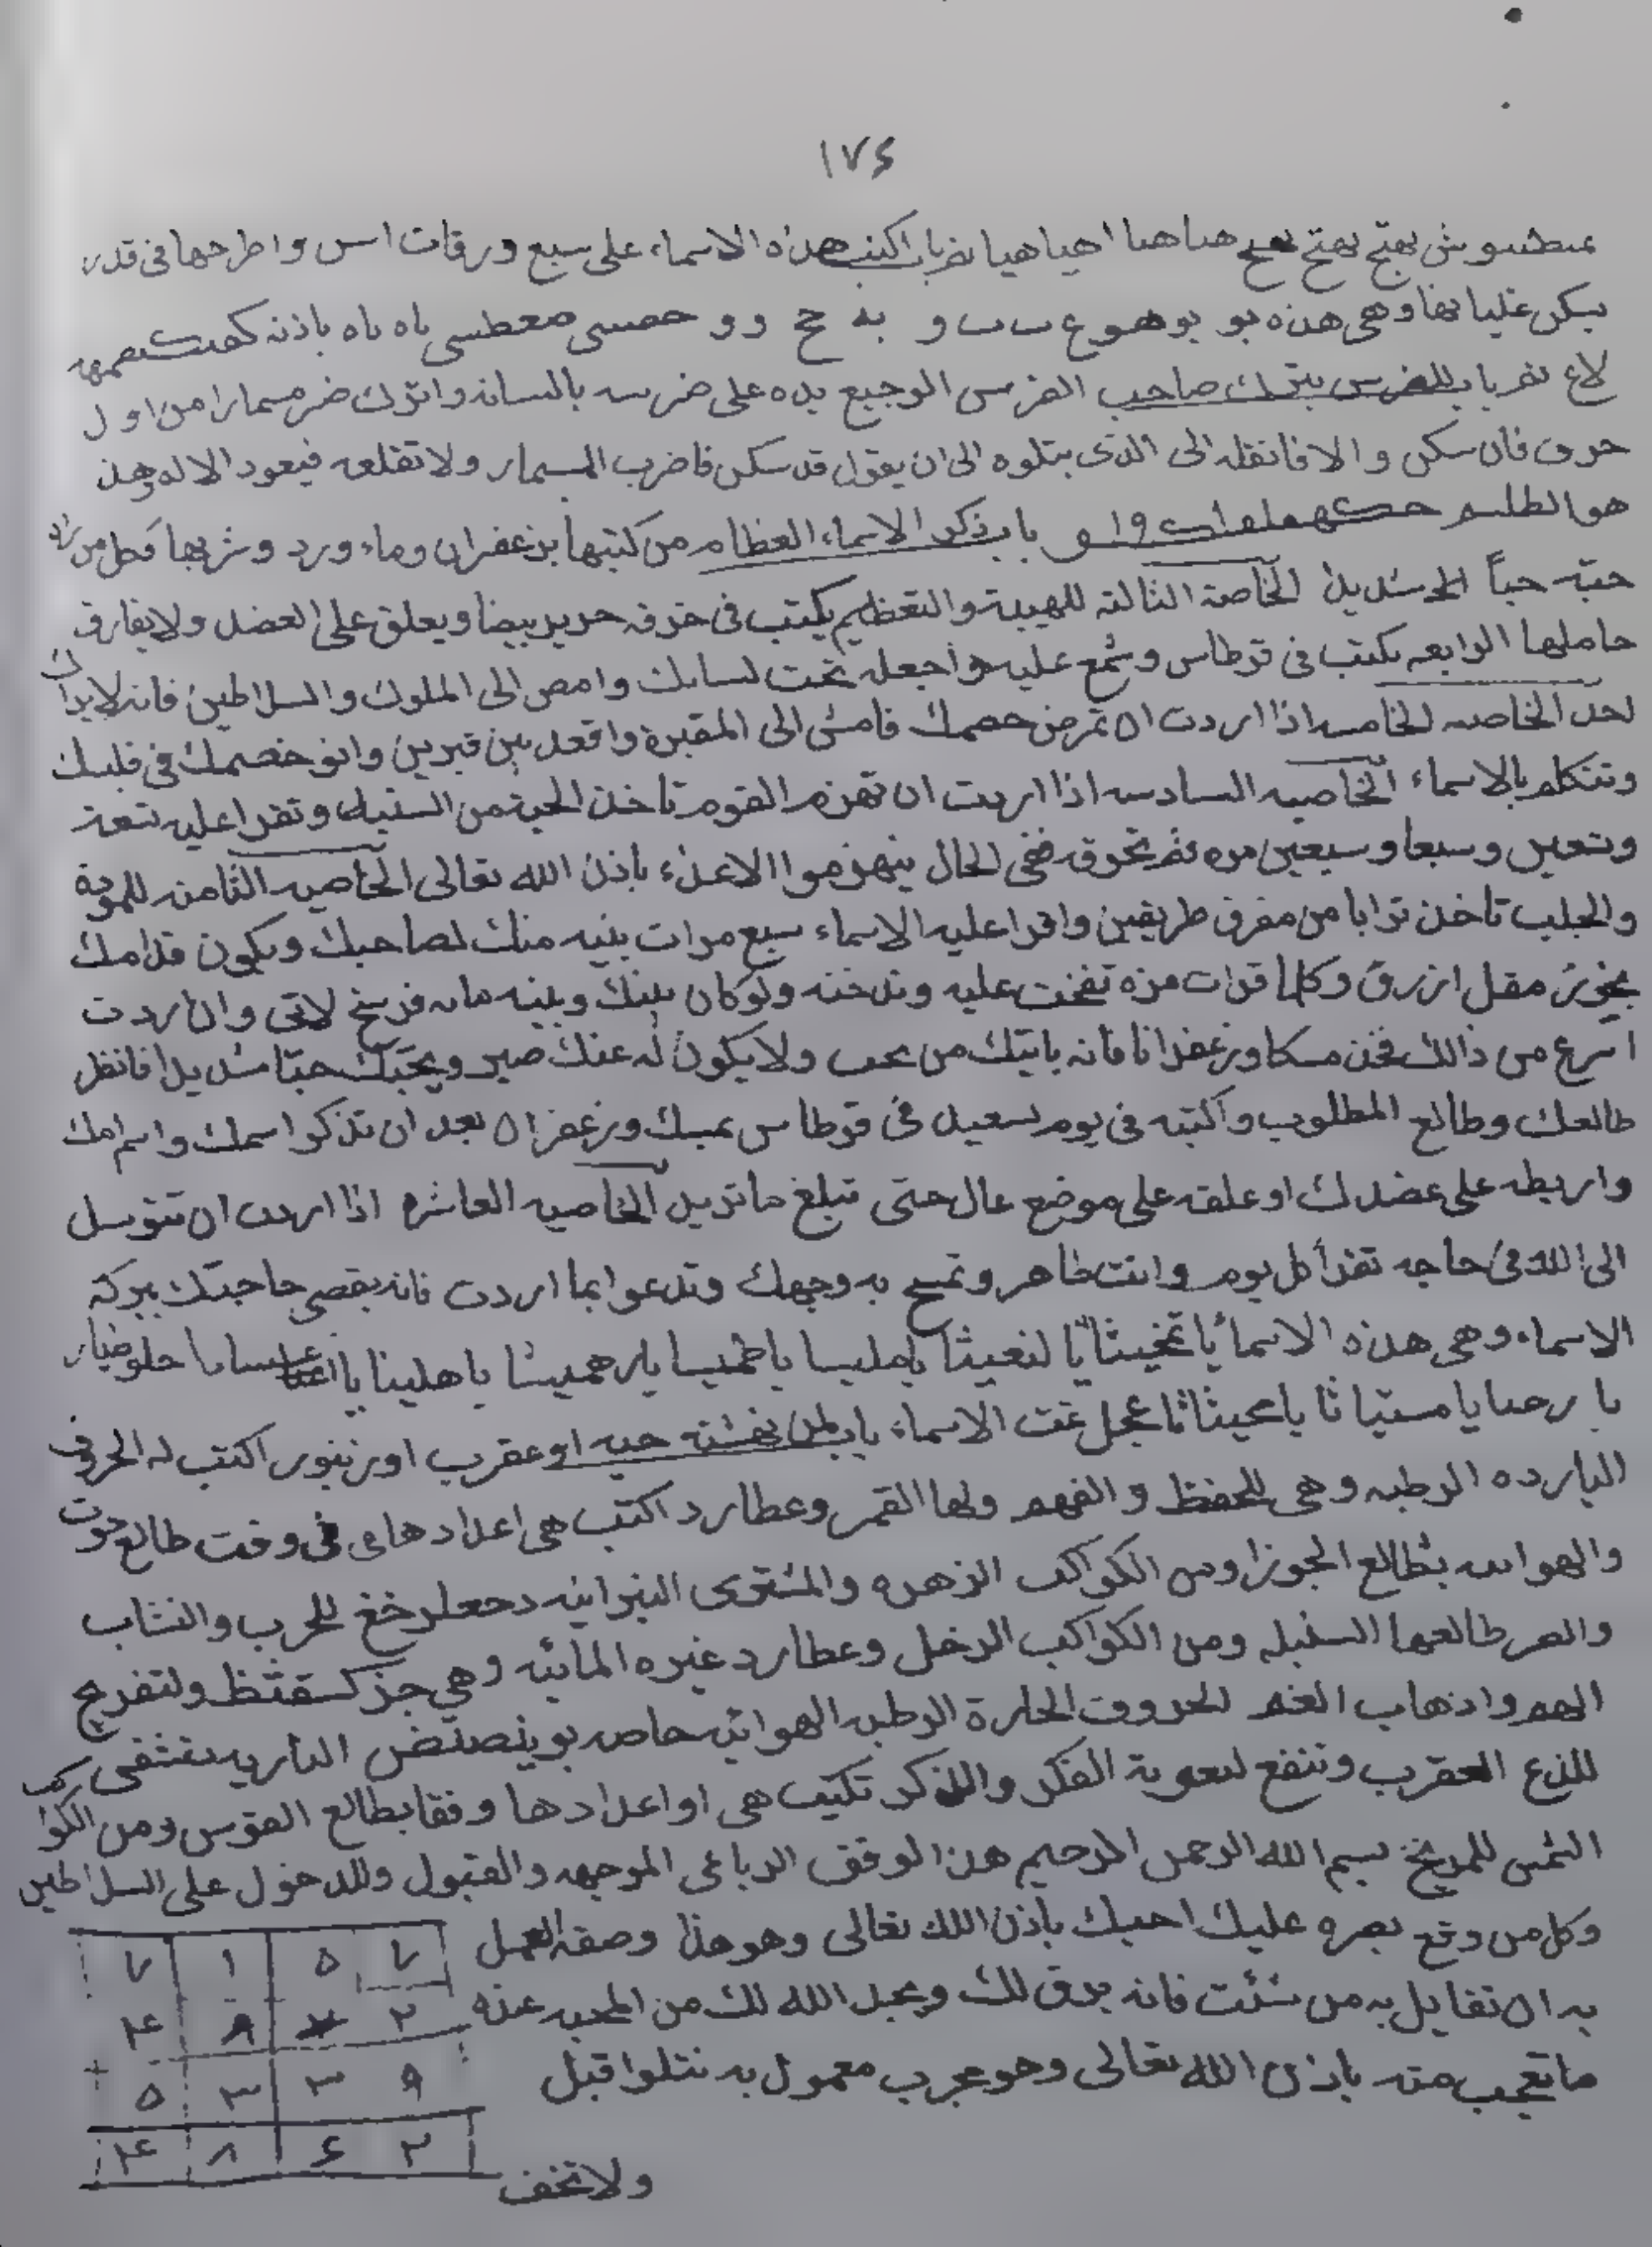 ١٧٤
بهتج بهتج هيا هيا اهيا هيا اكتب هذه الاسماء على سبع ورقات اس واطرحها فى قدر
يسكن غليانها وهى هذه بو بو هوع و به ح و و معطسى ياه ياه باذنه
لاع للضرس يترك صاحب الضرس الوجيع يده على ضرسه بالسانه واترك ضر مسمارا من اول
حرف فان سكن والا فانقله الى الذى يتلوه الى ان يقول قد سكن فاضرب المسمار ولا تقلعه فيعود الاله وهذ
هو الطلسم باب ذكر الاسماء العظام من كتبها بزعفران وماء ورد وشربها فكل من راه
حبّه حباً شديدا الخاصة الثالثه للهيبة والتعظيم يكتب فى خرقه حرير بيضا ويعلق على العضد ولا يفارق
حاملها الرابعه يكتب فى قرطاس وشمع عليه واجعله تحت لسانك وامض الى الملوك والسلاطين فانه لا يراك
احد الخاصه الخامسه اذا اردت ان تمرض خصمك فامشى الى المقبرة واقعد بين قبرين وانو خصمك فى قلبك
وتتكلم بالاسماء الخاصيه السادسه اذا اردت ان تهزم القوم تاخذ الحبة من السنبله وتقرا عليه تسعة
وتسعين وسبعا وسبعين مره ثم تحرق ففى الحال ينهزموا الاعداء باذن الله تعالى الخاصيه الثامنه للمودة
والجلب تاخذ ترابا من مفرق طريقين واقرا عليه الاسماء سبع مرات بنيه منك لصاحبك ويكون قدامك
بخور مقل ازرق وكلما قرات مره نفخت عليه وتدخنه ولو كان بينك وبينه مايه فرسخ لاتى وان اردت
اسرع من ذالك فخذ مسكا وزعفرانا فانه ياتيك من ولا يكون له عنك صبر ويحبّك حبّا شديدا فانظر
طالعك وطالع المطلوب واكتبه فى يوم سعيد فى قرطاس بمسك وزعفران بعد ان تذكر اسمك واسم امك
واربطه على عضدك او علقه على موضع عال حتى تبلغ ما تريد الخاصيه العاشره اذا اردت ان تتوسل
الى الله فى حاجه تقرأ كل يوم وانت طاهر وتمسح به وجهك وتدعوا بما اردت فانه يقضى حاجتك ببركة
الاسماء وهى هذه الاسما يا تخيثا يا لغيثا يا مليسا يا طميسا يا رحميثا يا هلينا يا
يا رحما يا مستياثا يا محيثاثا عجل تمت الاسماء باب لمن نهشته حيه او عقرب او زنبور اكتب له الحروف
البارده الرطبه وهى للحفظ والفهم ولها القمر وعطارد اكتب هى اعدادها فى وقت طالع حوت
والهوائيه بطالع الجوزا ومن الكواكب الزهره والمشترى الترابيه دحعلرخغ للحرب والنشاب
طالعها السنبله ومن الكواكب الزحل وعطارد غيره المائيه وهى جزكسقثظ ولتفريج
الهم واذهاب الغم الحروف الحارة الرطبه الهوائيه بوينصتض الناريه
للذع العقرب وتنفع لتقوية الفكر والذكر تكتب هى او اعدادها وفقا بطالع القوس ومن الكواكب
الشمس للمريخ بسم الله الرحمن الرحيم هذا الوفق الرباعى الموجهه والقبول وللدخول على السلاطين
وكل من وقع بصره عليك احبك باذن الله تعالى وهو هذا وصفة العمل
به ان تقابل به من شئت فانه يرق لك ويجد الله لك من المحبه عنده
ما تعجب منه باذن الله تعالى وهو مجرب معمول به نتلوا قبل
٧ ٥ ١ ٧
٢ ٨ ۴
٩ ٣ ٣ ٥
٢ ۶ ٨ ۴
ولا تخف